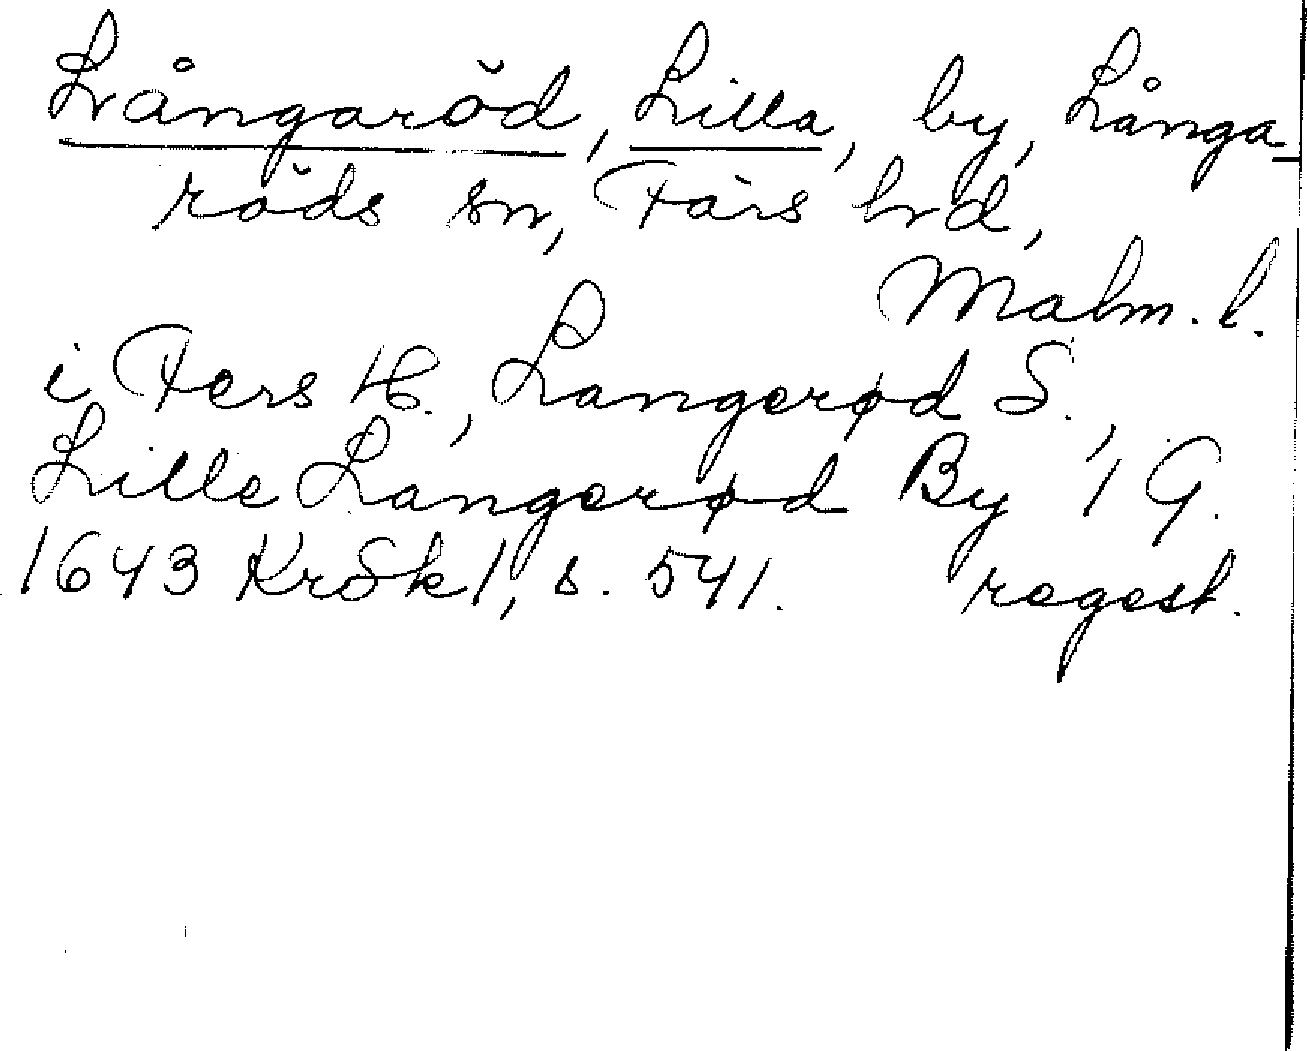 Långaröd, Lilla, by, Långa-
röds sn, Färs hd,
Malm. l.
i Fers H., Langerød S.,
Lille Langerød By 1 G.
1643 KrSk 1, s. 541. regest.